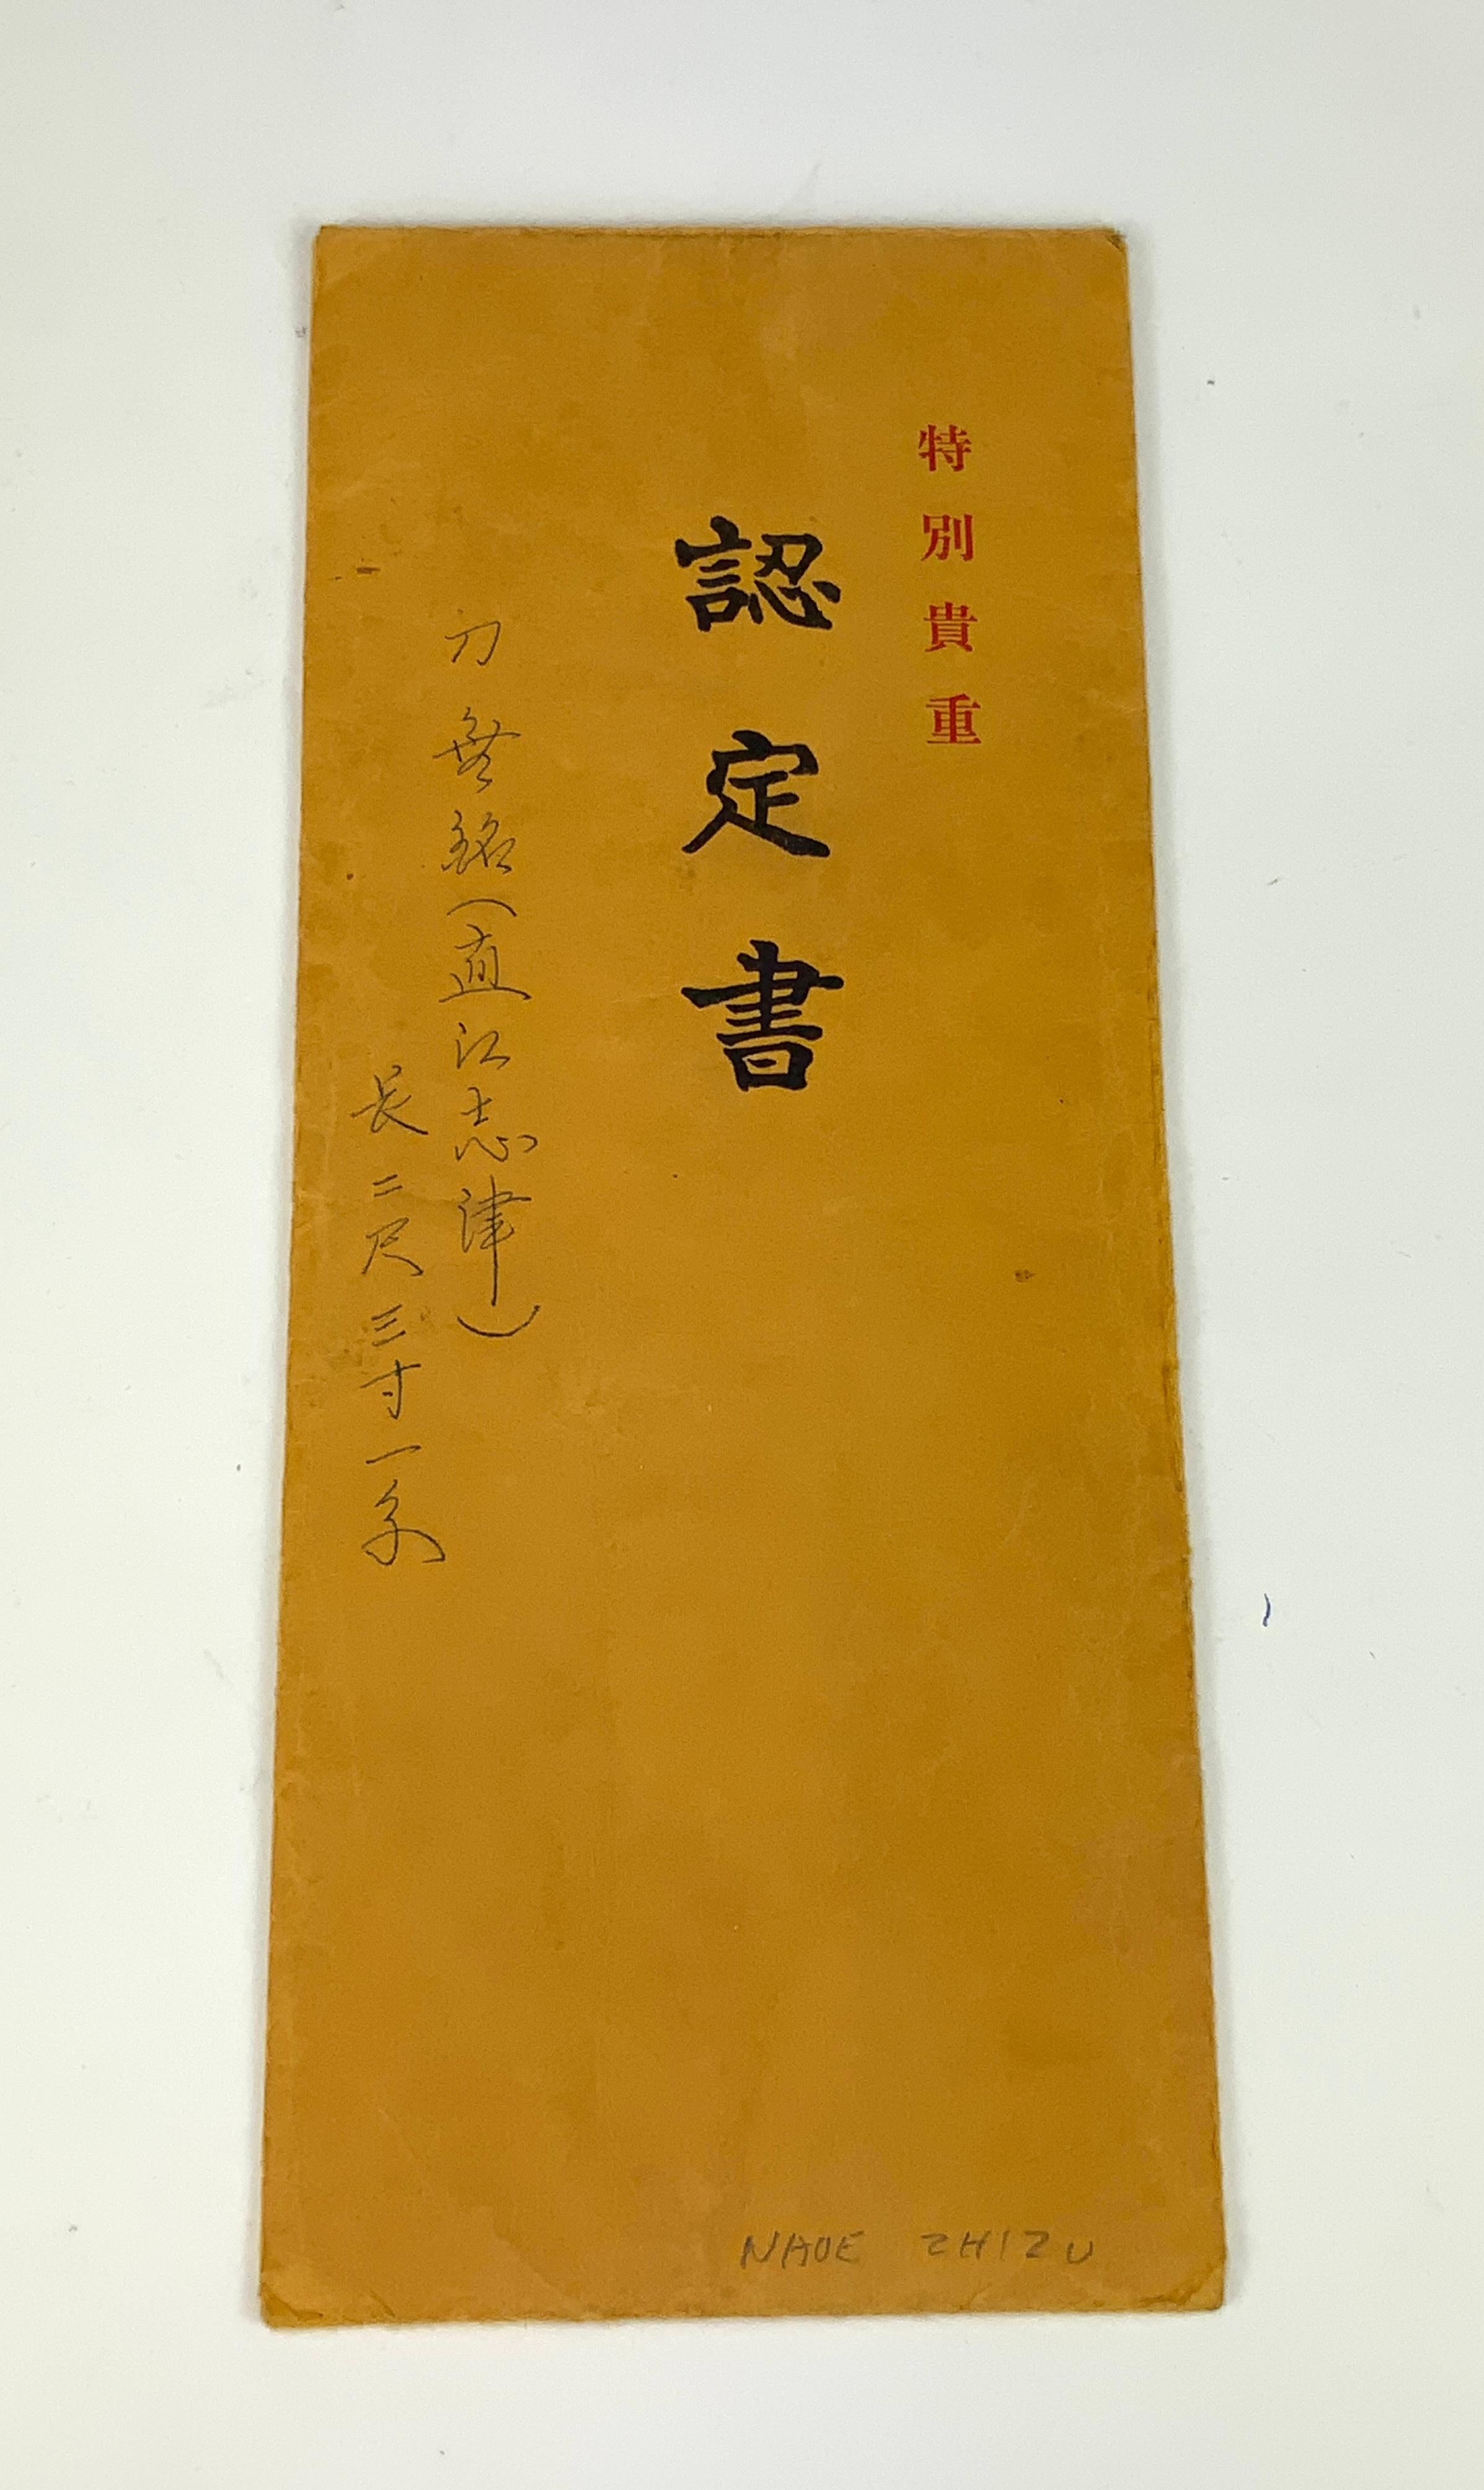 特別貴重
認定書
刀 無銘(直江志津)
長二尺三寸一分
NAOE ZHIZU